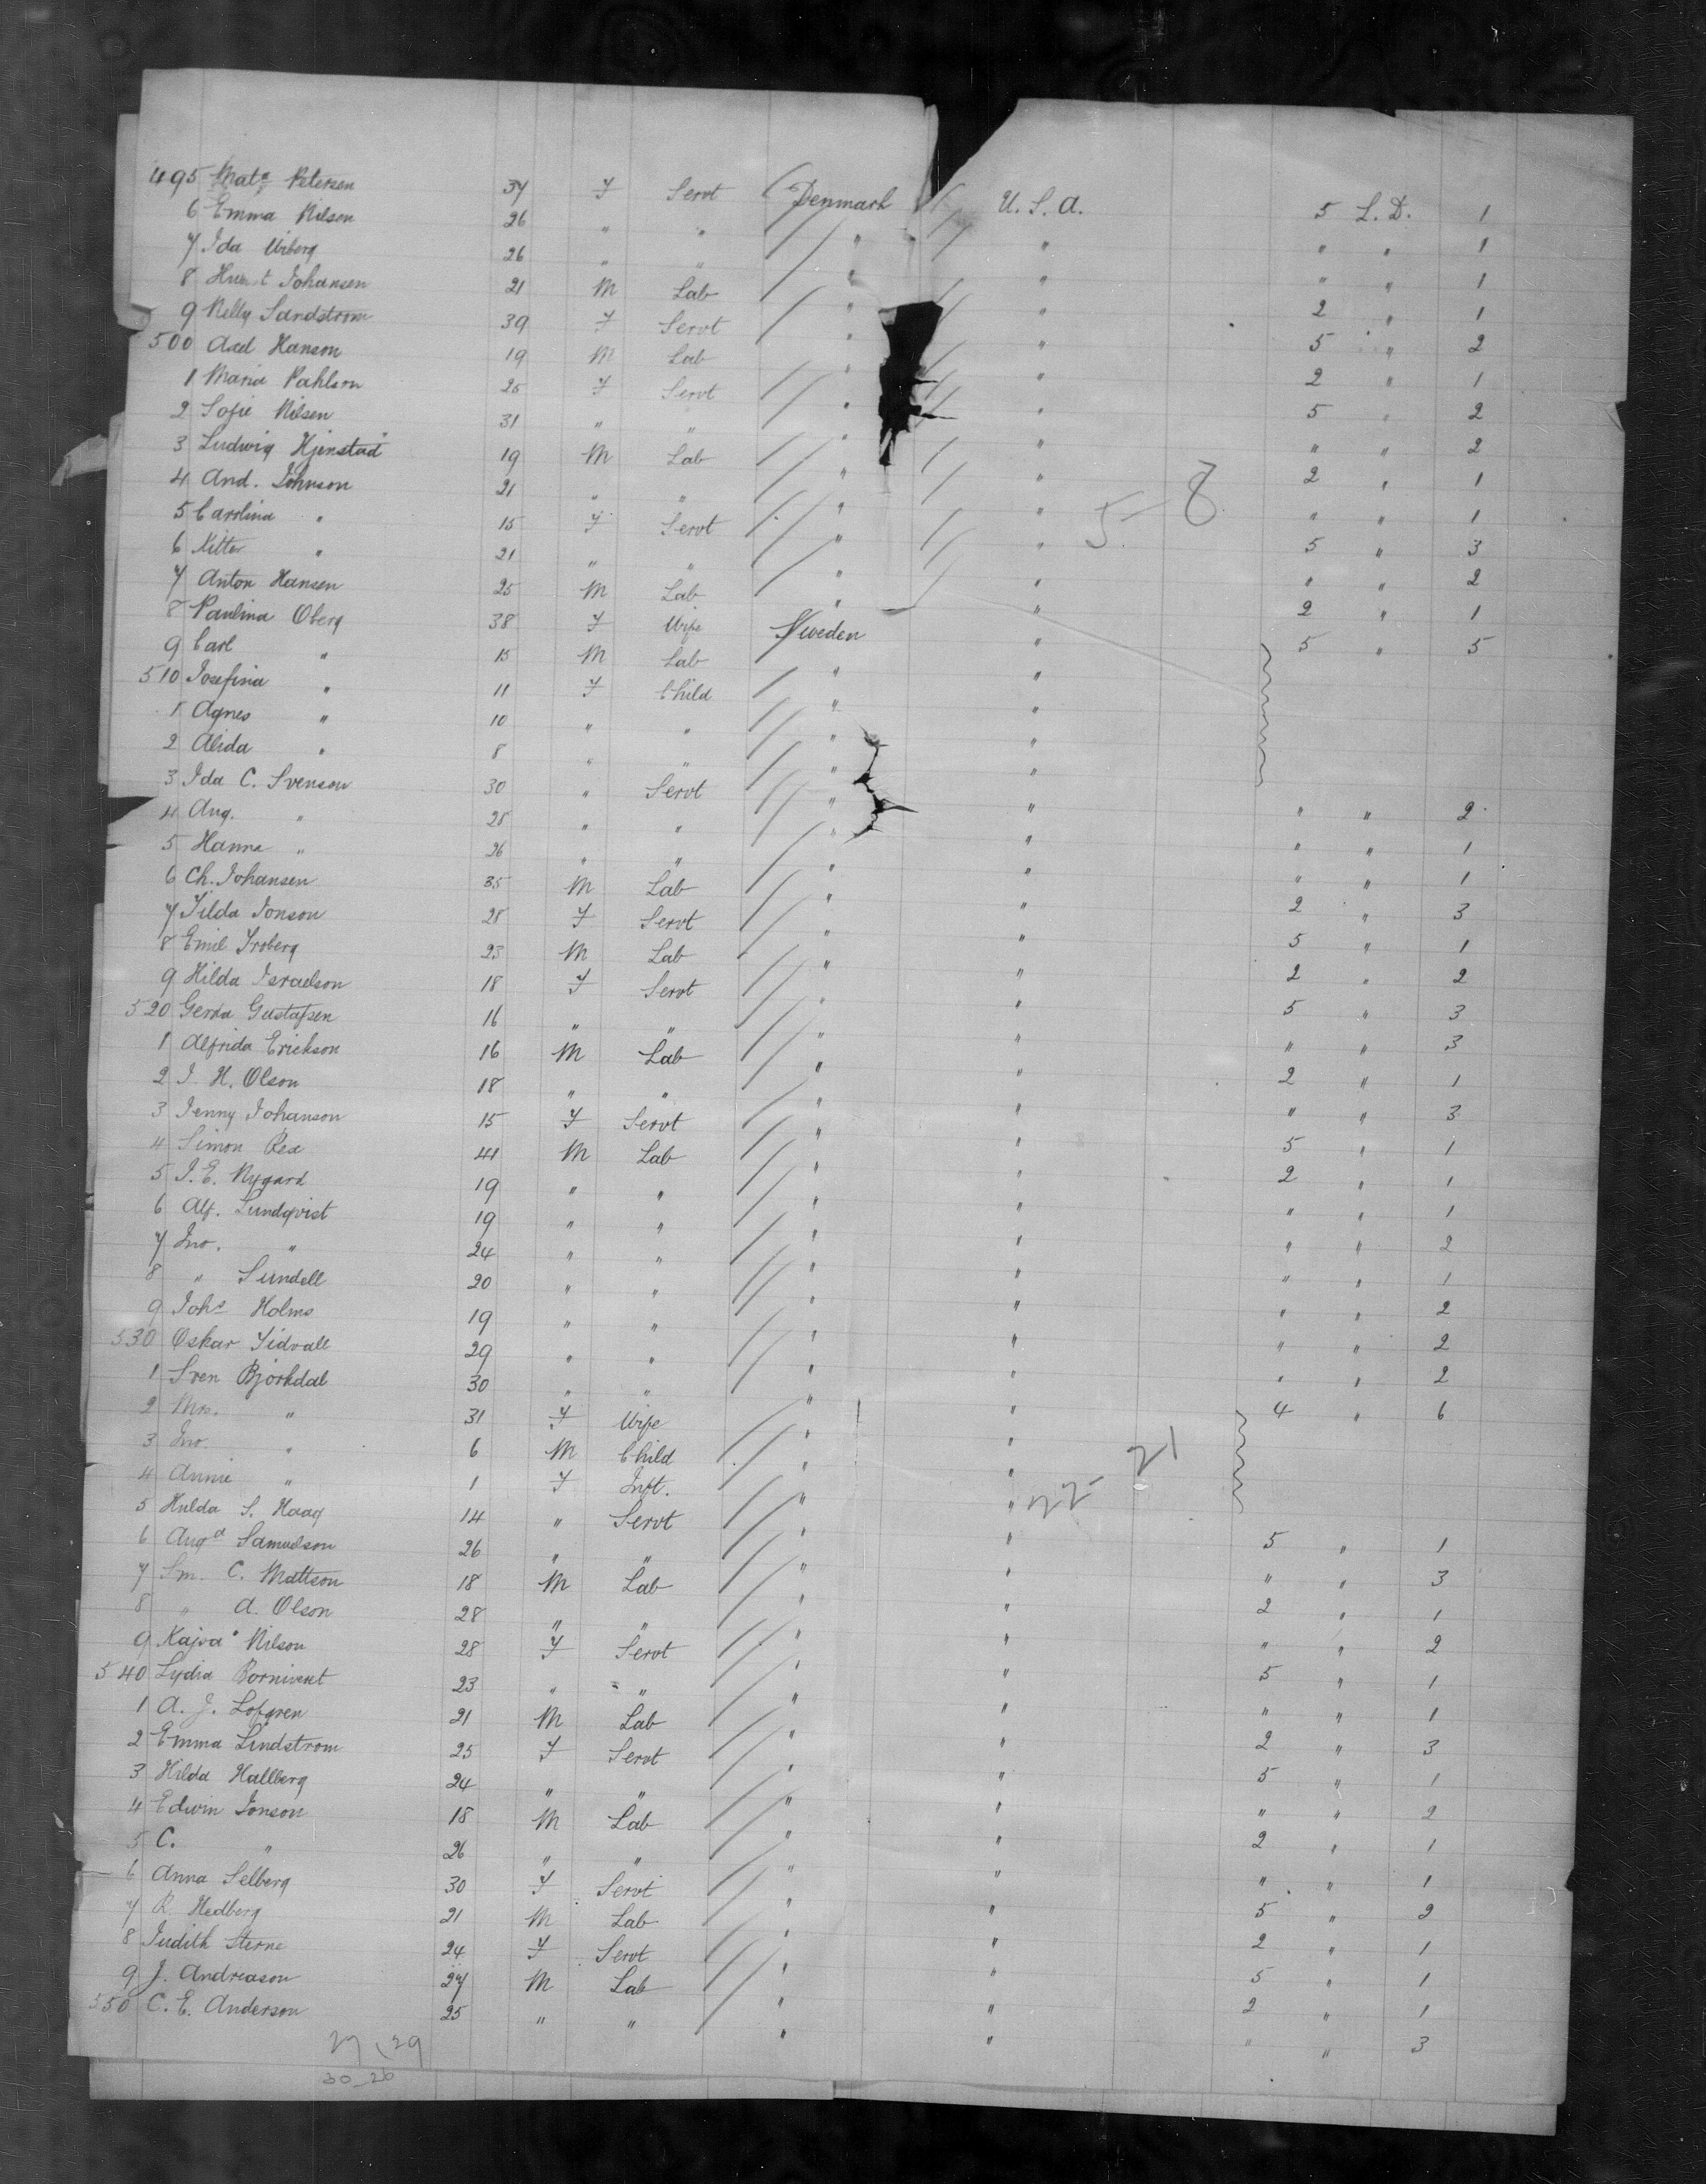 495 Mata Petersen 37 F Servt Denmark U. S. A. 5 L. D. 1
6 Emma Nilson 26 " " " " " " 1
7 Ida Wiberg 26 " " " " " " 1
8 Johansen 21 M Lab " " 2 " 1
9 Nelly Sandstrom 39 F Servt " " 5 " 2
500 Axel Hanson 19 M Lab " " 2 " 1
1 Maria Pahlson 25 F Servt " " 5 " 2
2 Sofie Nilsen 31 " " " " " " 2
3 Ludwig Hjenstad 19 M Lab " " 2 " 1
4 And. Johnson 21 " " " " " " 1
5 Carolina " 15 F Servt " " 5 " 3
6 " 21 " " " " " " 2
7 Anton Hansen 25 M Lab " " 2 " 1
8 Paulina Oberg 38 F Wife Sweden " 5 " 5
9 Carl " 15 M Lab " "
510 Josefina " 11 F Child " "
1 Agnes " 10 " " " "
2 Alida " 8 " " " "
3 Ida C. Svenson 30 " Servt " " " " 2
4 Aug. " 28 " " " " " " 1
5 Hanna " 26 " " " " " " 1
6 Ch. Johansen 35 M Lab " " 2 " 3
7 Tilda Jonson 28 F Servt " " 5 " 1
8 Emil Froberg 23 M Lab " " 2 " 2
9 Hilda Israelson 18 F Servt " " 5 " 3
520 Gerda Gustafsen 16 " " " " " " 3
1 Alfrida Erickson 16 M Lab " " 2 " 1
2 J. H. Olson 18 " " " " " " 3
3 Jenny Johanson 15 F Servt " " 5 " 1
4 Simon Rex 41 M Lab " " 2 " 1
5 J. E. Nygard 19 " " " " " " 1
6 Alf. Lundqvist 19 " " " " " " 2
7 Jno. " 24 " " " " " " 1
8 " Sundell 20 " " " " " " 2
9 Johs Holms 19 " " " " " " 2
530 Oskar Tidvall 29 " " " " " " 2
1 Sven Bjorkdal 30 " " " " 4 " 6
2 Mrs. " 31 F Wife " "
3 Jno. " 6 M Child " "
4 Annie " 1 F Inft. " "
5 Hulda S. Haag 14 " Servt " " 5 " 1
6 Auga Samuelson 26 " " " " " " 3
7 Sm. C. Mattson 18 M Lab " " 2 " 1
8 " A. Olson 28 " " " " " " 2
9 Kajsa Nilson 28 F Servt " " 5 " 1
540 Lydia 23 " " " " " " 1
1 A. J. Lofgren 21 M Lab " " 2 " 3
2 Emma Lindstrom 25 F Servt " " 5 " 1
3 Hilda Hallberg 24 " " " " " " 2
4 Edwin Jonson 18 M Lab " " 2 " 1
5 C. " 26 " " " " " " 1
6 Anna Selberg 30 F Servt " " 5 " 2
7 R. Hedberg 21 M Lab " " 2 " 1
8 Judith Sterne 24 F Servt " " 5 " 1
9 J. Andreason 27 M Lab " " 2 " 1
550 C. E. Anderson 25 " " " " " " 3
5 - 8
21
29
30 - 26